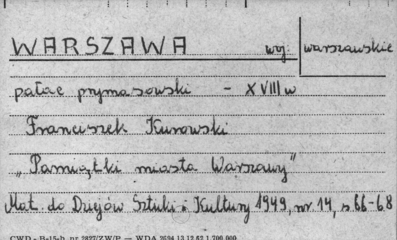 WARSZAWA woj: warszawskie
pałac prymasowski - XVIII w
Franciszek Kurowski
"Pamiątki miasta Warszawy"
Mat. do Dziejów Sztuki i Kultury 1949, nr. 14, s. 66-68
CWD - B-15-b nr 2827/ZW/P — WDA 2694 13.12.52 1.700.000